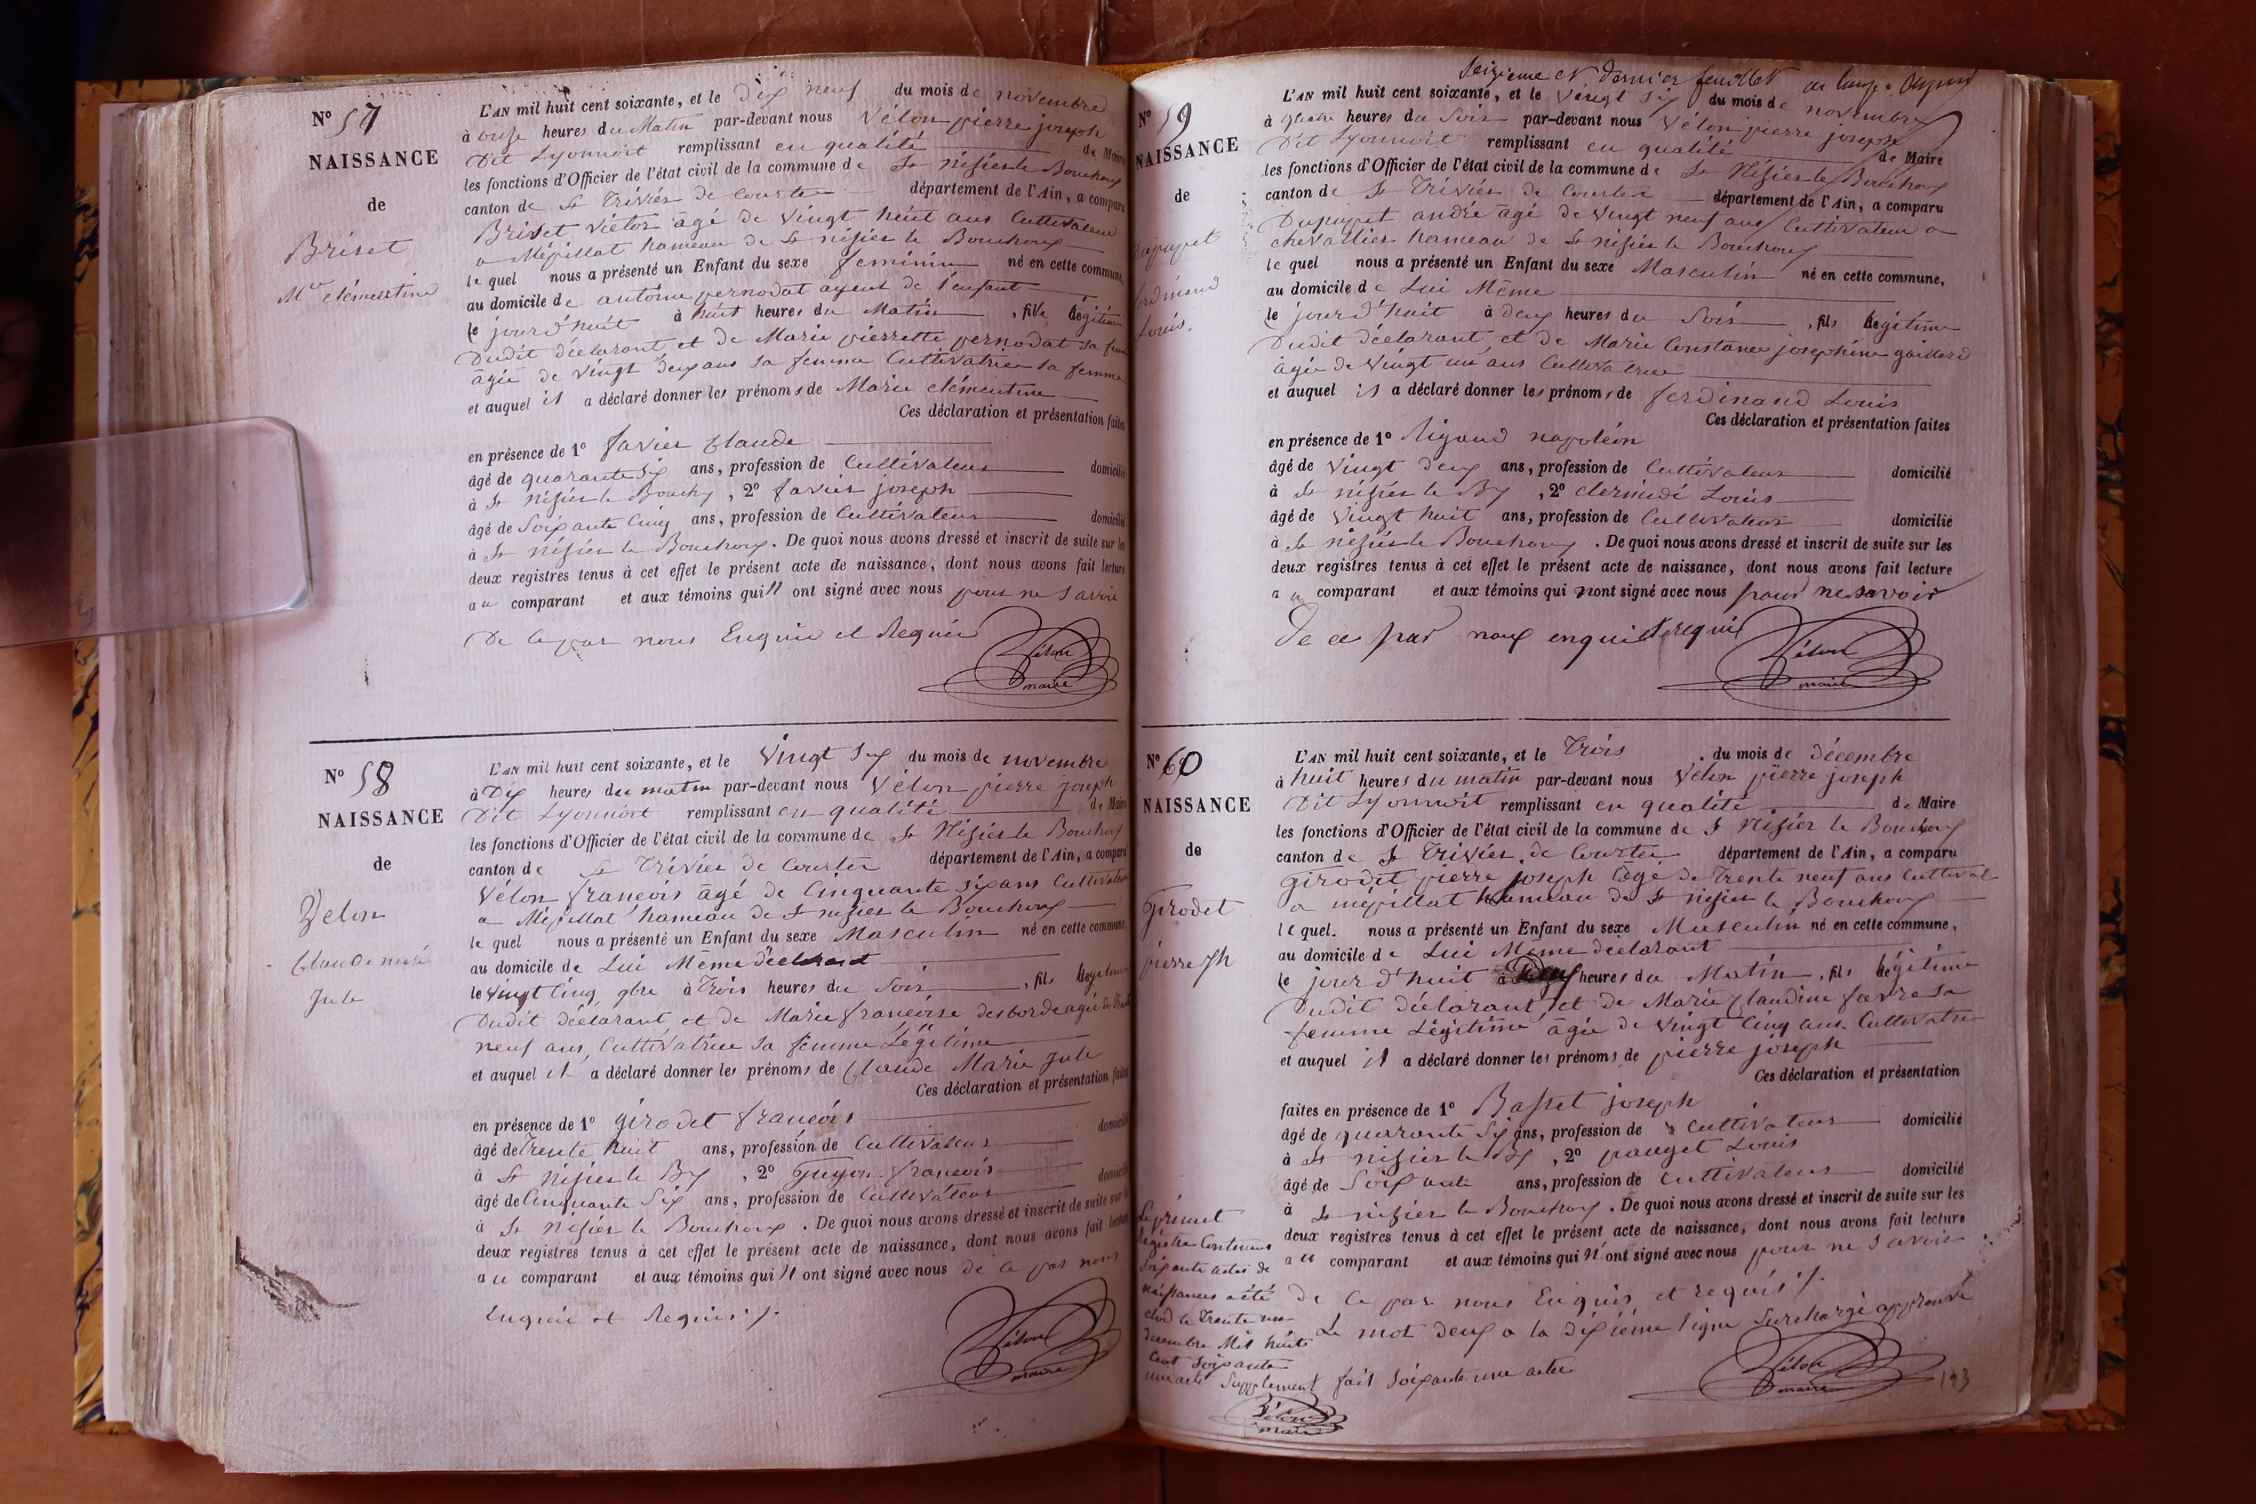 N° 57
NAISSANCE
de
Briset
M.ie clémentine
L'AN mil huit cent soixante, et le dix neuf du mois de novembre
à onze heures du Matin par-devant nous Vélon pierre joseph
Dit Lyonnoit remplissant en qualité de Maire
les fonctions d'Officier de l'état civil de la commune de St Nizier le Bouchoux
canton de St Trivier de Courtes département de l'Ain, a comparu
Briset Victor âgé de vingt huit ans Cultivateur
a Mépillat hameau de St nizier le Bouchoux
le quel nous a présenté un Enfant du sexe feminin né en cette commune,
au domicile de antoine pernodat ayeul de l'enfant
le jourd'huit à huit heures du Matin, fille légitime
Dudit déclarant, et de Marie pierrette pernodat sa femme
âgée de vingt deux ans sa femme Cultivatrice sa femme
et auquel il a déclaré donner les prénoms de Marie clémentine
Ces déclaration et présentation faites
en présence de 1° favier Claude
âgé de quarante six ans, profession de Cultivateur domicilié
à St nizier le Bouchx, 2° favier joseph
âgé de Soixante Cinq ans, profession de Cultivateur domicilié
à St nizier le Bouchoux. De quoi nous avons dressé et inscrit de suite sur les
deux registres tenus à cet effet le présent acte de naissance, dont nous avons fait lecture
au comparant et aux témoins qui n' ont signé avec nous pour ne savoir
De ce par nous Enquis et Requis
Vélon
maire
N° 58
NAISSANCE
de
Velon
Claude marie
Jule
L'AN mil huit cent soixante, et le vingt six du mois de novembre
à Dix heures du matin par-devant nous Vélon pierre joseph
Dit Lyonnoit remplissant en qualité de Maire
les fonctions d'Officier de l'état civil de la commune de St Nizier le Bouchoux
canton de St Trivier de Courtes département de l'Ain, a comparu
Vélon françois âgé de Cinquante six ans Cultivateur
a Mépillat hameau de St nizier le Bouchoux
le quel nous a présenté un Enfant du sexe Masculin né en cette commune,
au domicile de Lui Même déclarant
le vingt Cinq 9bre à Trois heures du Soir, fils légitime
Dudit déclarant et de Marie françoise desborde agée de trente
neuf ans, Cultivatrice sa femme Légitime
et auquel il a déclaré donner les prénoms de Claude Marie Jule
Ces déclaration et présentation faites
en présence de 1° girodet françois
âgé de Trente huit ans, profession de Cultivateur domicilié
à St Nizier le Bx, 2° Guyon françois
âgé de Cinquante Six ans, profession de Cultivateur domicilié
à St Nizier le Bouchoux. De quoi nous avons dressé et inscrit de suite sur les
deux registres tenus à cet effet le présent acte de naissance, dont nous avons fait lecture
au comparant et aux témoins qui n' ont signé avec nous de ce par nous
Enquis et Requis ./.
Vélon
maire
Seizieme et dernier feuillet
N° 59
NAISSANCE
de
Dupupet
ferdinand
Louis.
L'AN mil huit cent soixante, et le vingt six du mois de novembre
à quatre heures du Soir par-devant nous Vélon pierre joseph
Dit Lyonnoit remplissant en qualité de Maire
les fonctions d'Officier de l'état civil de la commune de St Nizier le Bouchoux
canton de St Trivier de Courtes département de l'Ain, a comparu
Dupupet andré âgé de vingt neuf ans Cultivateur a
chevallier hameau de St nizier le Bouchoux
le quel nous a présenté un Enfant du sexe Masculin né en cette commune,
au domicile de Lui Même
le jourd'huit à deux heures du Soir, fils légitime
Dudit déclarant et de Marie Constance joséphine gaillard
âgée de vingt un ans Cultivatrice
et auquel il a déclaré donner les prénoms de ferdinand Louis
Ces déclaration et présentation faites
en présence de 1° Rigaud napoléon
âgé de vingt deux ans, profession de Cultivateur domicilié
à St nizier le Bx, 2° clermidi Louis
âgé de vingt huit ans, profession de Cultivateur domicilié
à St nizier le Bouchoux. De quoi nous avons dressé et inscrit de suite sur les
deux registres tenus à cet effet le présent acte de naissance, dont nous avons fait lecture
au comparant et aux témoins qui nont signé avec nous pour ne savoir
de ce par nous enquis et requis
Vélon
maire
N° 60
NAISSANCE
de
Girodet
pierre jph
L'AN mil huit cent soixante, et le Trois du mois de décembre
à huit heures du matin par-devant nous Vélon pierre joseph
Dit Lyonnoit remplissant en qualité de Maire
les fonctions d'Officier de l'état civil de la commune de St Nizier le Bouchoux
canton de St Trivier de Courtes département de l'Ain, a comparu
girodet pierre joseph âgé de Trente neuf ans Cultivat
a mépillat hameau de St nizier le Bouchoux
le quel nous a présenté un Enfant du sexe Masculin né en cette commune,
au domicile de Lui Même déclarant
le jourd'huit à deux heures du Matin, fils légitime
Dudit déclarant, et de Marie Claudine favre sa
femme Légitime âgée de vingt Cinq ans Cultivatrice
et auquel il a déclaré donner les prénoms de pierre joseph
Ces déclaration et présentation
faites en présence de 1° Basset joseph
âgé de quarante six ans, profession de Cultivateur domicilié
à St nizier le Bx, 2° pauget Louis
âgé de Soixante ans, profession de Cultivateur domicilié
à St nizier le Bouchoux. De quoi nous avons dressé et inscrit de suite sur les
deux registres tenus à cet effet le présent acte de naissance, dont nous avons fait lecture
au comparant et aux témoins qui n' ont signé avec nous pour ne savoir
de ce par nous Enquis et requis ./.
Le mot deux a la dixième ligne Surchargé approuvé
Le présent
Registre Contenant
Soixante actes de
naissances a été
clos le Trente un
décembre Mil huit
Cent Soixante
un acte Supplement fait soixante une actes
Vélon
maire
Vélon
maire
123